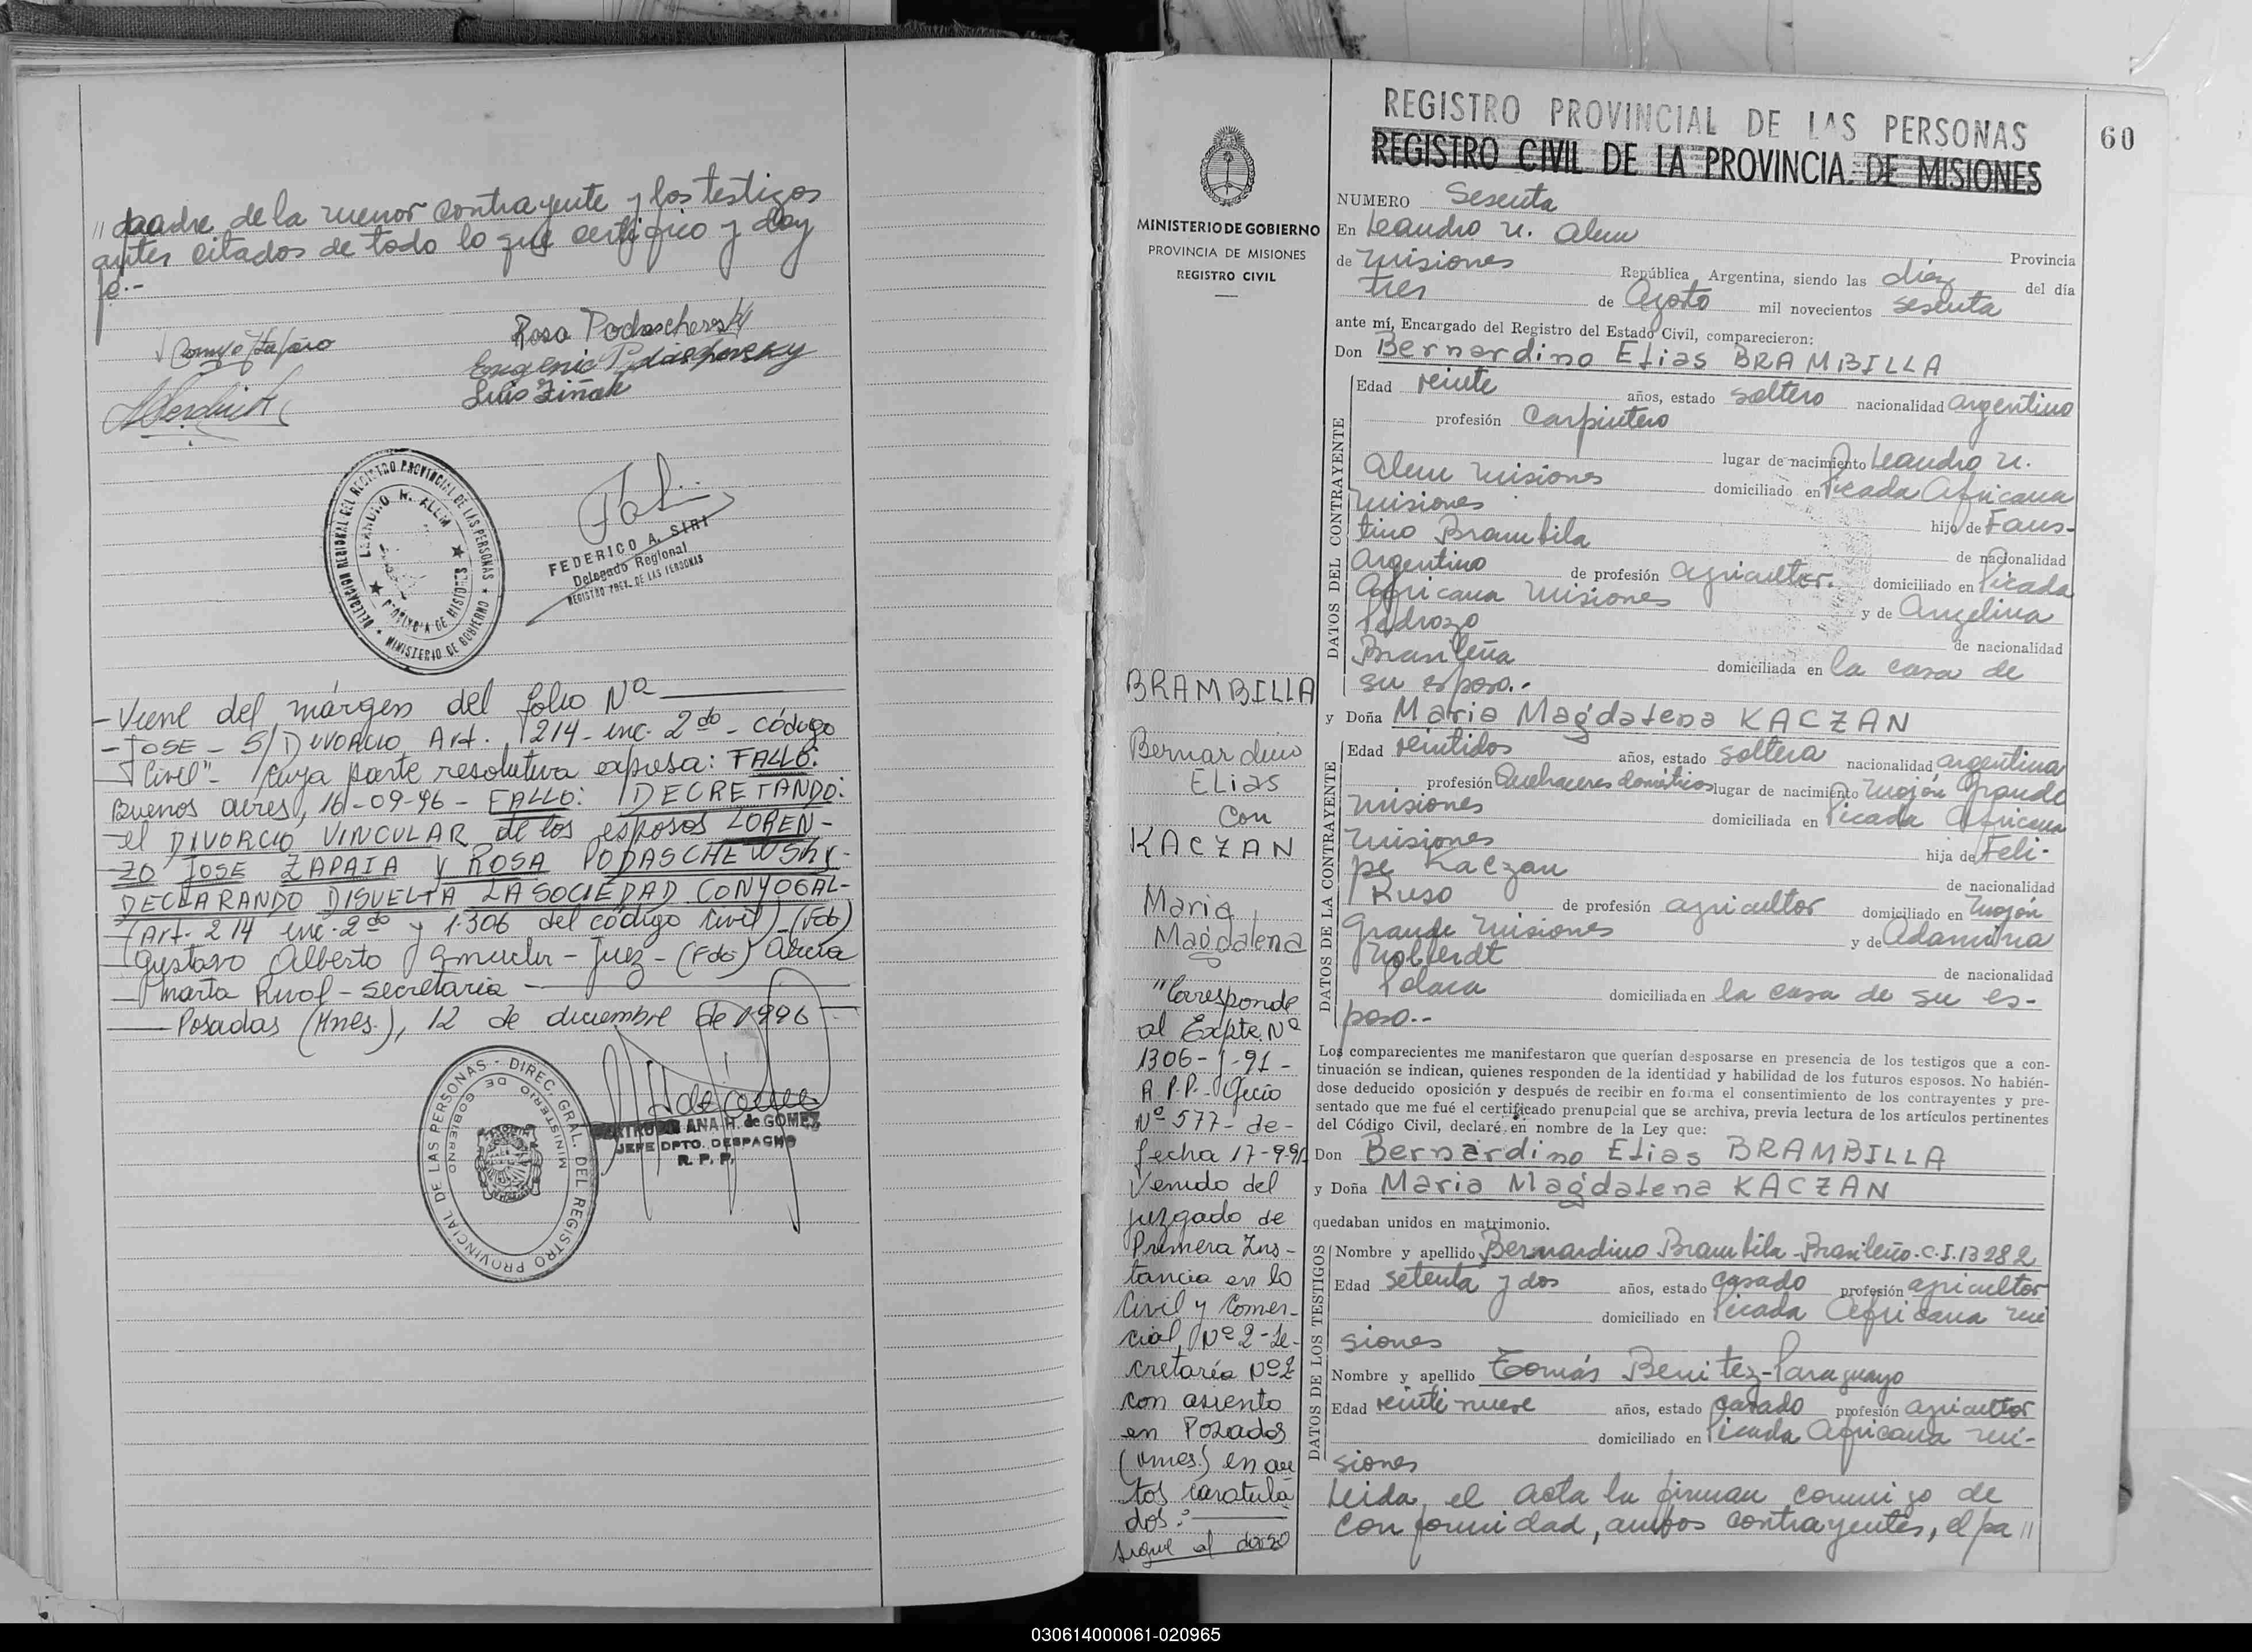 // padre de la menor contrayente y los testigos
antes citados de todo lo que certifico y doy
fe.-
Rosa Podaschevsky
Eugenio Podaschevsky
Luis Ziñak
DELEGACION REGIONAL DEL REGISTRO PROVINCIAL DE LAS PERSONAS ★ MINISTERIO DE GOBIERNO ★
LEANDRO N. ALEM ★ PROVINCIA DE MISIONES ★
FEDERICO A. SIRI
Delegado Regional
REGISTRO PROV. DE LAS PERSONAS
- Viene del márgen del folio Nº
- JOSE - S/ DIVORCIO Art. 214 - inc. 2do - código
Civil" - cuya parte resolutiva expresa: FALLO:
Buenos aires, 16-09-96 - FALLO: DECRETANDO:
el DIVORCIO VINCULAR de los esposos LOREN-
ZO JOSE ZAPAIA Y ROSA PODASCHEWSKY-
DECLARANDO DISUELTA LA SOCIEDAD CONYOGAL-
(Art. 214 inc. 2do y 1.306 del código Civil) - (Fdo)
Gustavo Alberto - Juez - (Fdo) Alicia
Marta - secretaria -
Posadas (Mnes.), 12 de diciembre de 1996 -
DIREC. GRAL. DEL REGISTRO PROVINCIAL DE LAS PERSONAS -
MINISTERIO DE GOBIERNO
ANA H. de GOMEZ
JEFE DPTO. DESPACHO
R. P. P.
MINISTERIO DE GOBIERNO
PROVINCIA DE MISIONES
REGISTRO CIVIL
BRAMBILLA
Bernardino
ELias
Con
KACZAN
Maria
Magdalena
"Corresponde
al Expte. Nº
1306-J-91-
R.P.P. Oficio
Nº 577- de-
fecha 17-9-91
Venido del
juzgado de
Primera Ins-
tancia en lo
Civil y Comer-
cial, Nº 2 - Se-
cretaría Nº 2
con asiento
en Posadas
(Mnes.) en au
tos caratula
dos:
sigue al dorso
REGISTRO PROVINCIAL DE LAS PERSONAS
REGISTRO CIVIL DE LA PROVINCIA DE MISIONES
60
NUMERO Sesenta
En Leandro N. Alem
Provincia
de Misiones República Argentina, siendo las diez del día
tres de Agosto mil novecientos sesenta
ante mí, Encargado del Registro del Estado Civil, comparecieron:
Don Bernardino Elias BRAMBILLA
DATOS DEL CONTRAYENTE
Edad veinte años, estado soltero nacionalidad argentino
profesión Carpintero
lugar de nacimiento Leandro N.
Alem Misiones domiciliado en Picada Africana
Misiones hijo de Faus-
tino Brambila de nacionalidad
Argentino de profesión agricultor. domiciliado en Picada
Africana Misiones y de Angelina
Pedrozo de nacionalidad
Brasileña domiciliada en la casa de
su esposo.-
y Doña Maria Magdalena KACZAN
DATOS DE LA CONTRAYENTE
Edad veintidos años, estado soltera nacionalidad argentina
profesión Quehaceres domésticos lugar de nacimiento Mojón Grande
Misiones domiciliada en Picada Africana
Misiones hija de Feli-
pe Kaczan de nacionalidad
Ruso de profesión agricultor domiciliado en Mojón
Grande Misiones y de Adamina
de nacionalidad
Polaca domiciliada en la casa de su es-
poso.-
Los comparecientes me manifestaron que querían desposarse en presencia de los testigos que a con-
tinuación se indican, quienes responden de la identidad y habilidad de los futuros esposos. No habién-
dose deducido oposición y después de recibir en forma el consentimiento de los contrayentes y pre-
sentado que me fué el certificado prenupcial que se archiva, previa lectura de los artículos pertinentes
del Código Civil, declaré en nombre de la Ley que:
Don Bernardino Elias BRAMBILLA
y Doña Maria Magdalena KACZAN
quedaban unidos en matrimonio.
DATOS DE LOS TESTIGOS
Nombre y apellido Bernardino Brambila - Brasileño. C.I. 13282
Edad setenta y dos años, estado casado profesión agricultor
domiciliado en Picada Africana Mi
siones
Nombre y apellido Tomás Benitez - Paraguayo
Edad veinti nueve años, estado casado profesión agricultor
domiciliado en Picada Africana Mi-
siones
Leida, el acta la firman conmigo de
conformidad, ambos contrayentes, el pa //
030614000061-020965